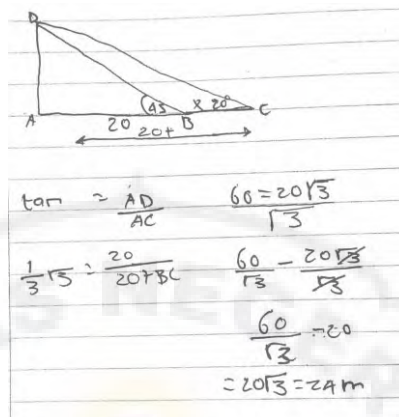 D
45
x 20°
A
20
B
C
20+
tan = AD/AC
1/3 √3 = 20/20+BC
60 = 20√3/√3
60/√3 - 20√3/√3
60/√3 - 20
= 20√3 = 24 m